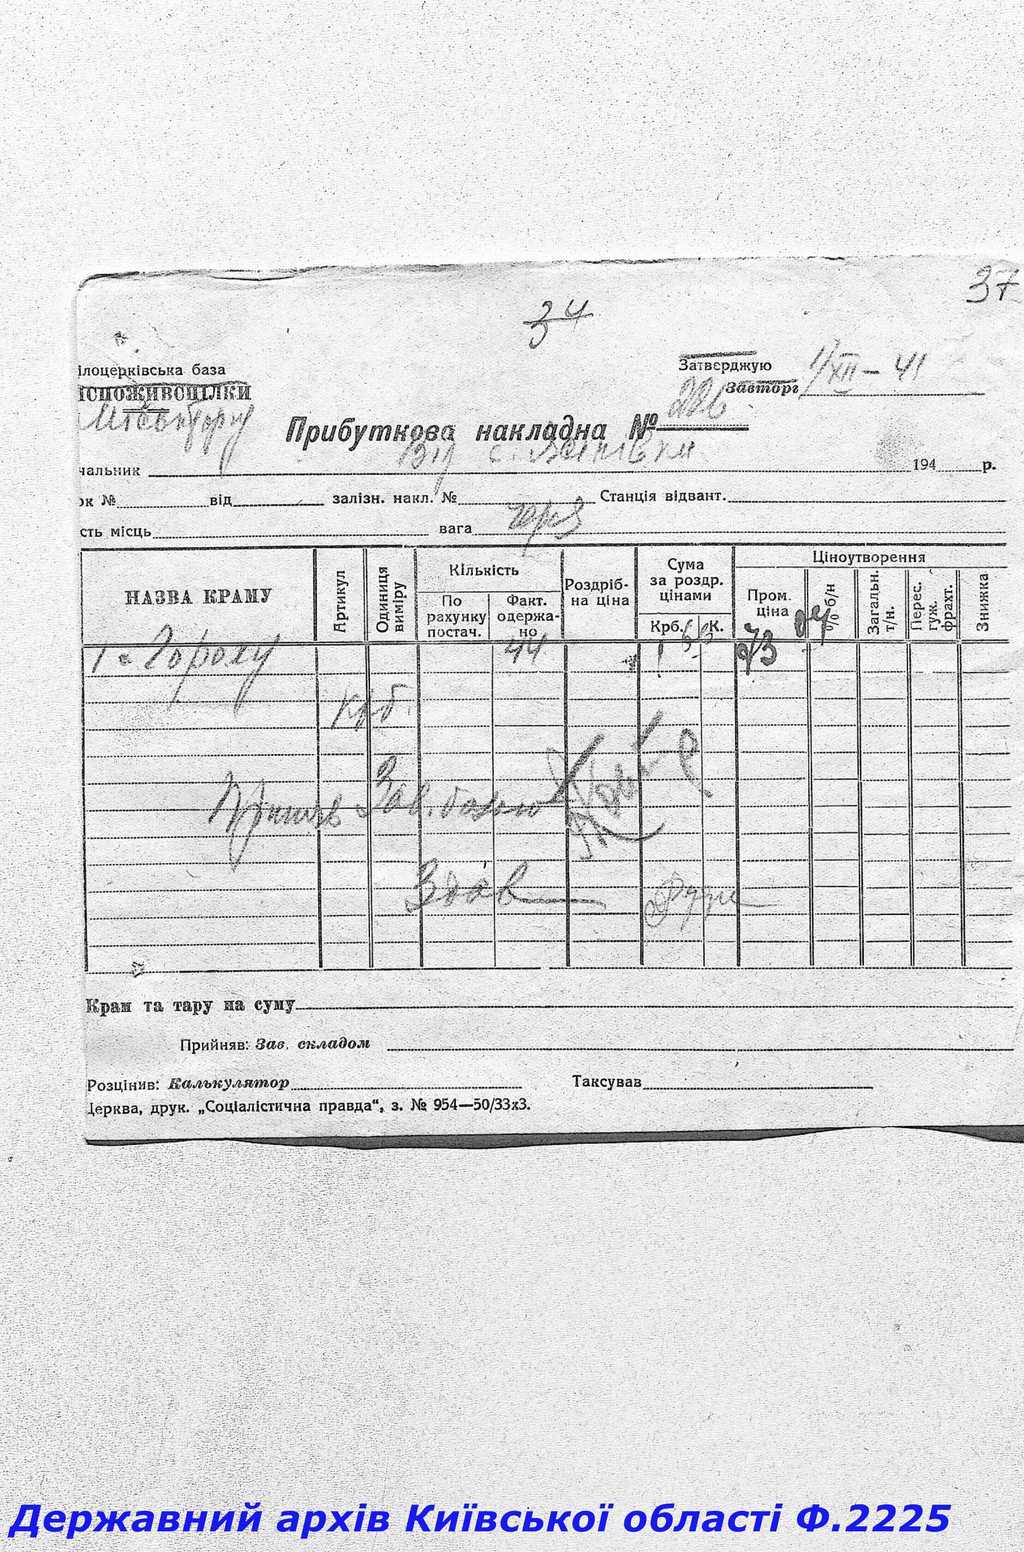 37
34
ілоцерківська база
Затверджую 1/XII - 41
Завторг
Міськторг
226
Прибуткова накладна №
від с.
чальник 194 р.
ок № від залізн. накл. № Станція відвант.
сть місць вага
НАЗВА КРАМУ Артикул Одиниця виміру Кількість По рахунку постач. Факт. одержано Роздрібна ціна Сума за роздр. цінами Крб. К. Ціноутворення Пром. ціна % б/н Загальн. т/н. Перес. гуж. фрахт. Знижка
1. Гороху 44 73
крб.
Прийняв Зав. базою
Здав
Крам та тару на суму
Прийняв: Зав. складом
Розцінив: Калькулятор Таксував
Церква, друк. „Соціалістична правда“, з. № 954—50/33х3.
Державний архів Київської області Ф.2225